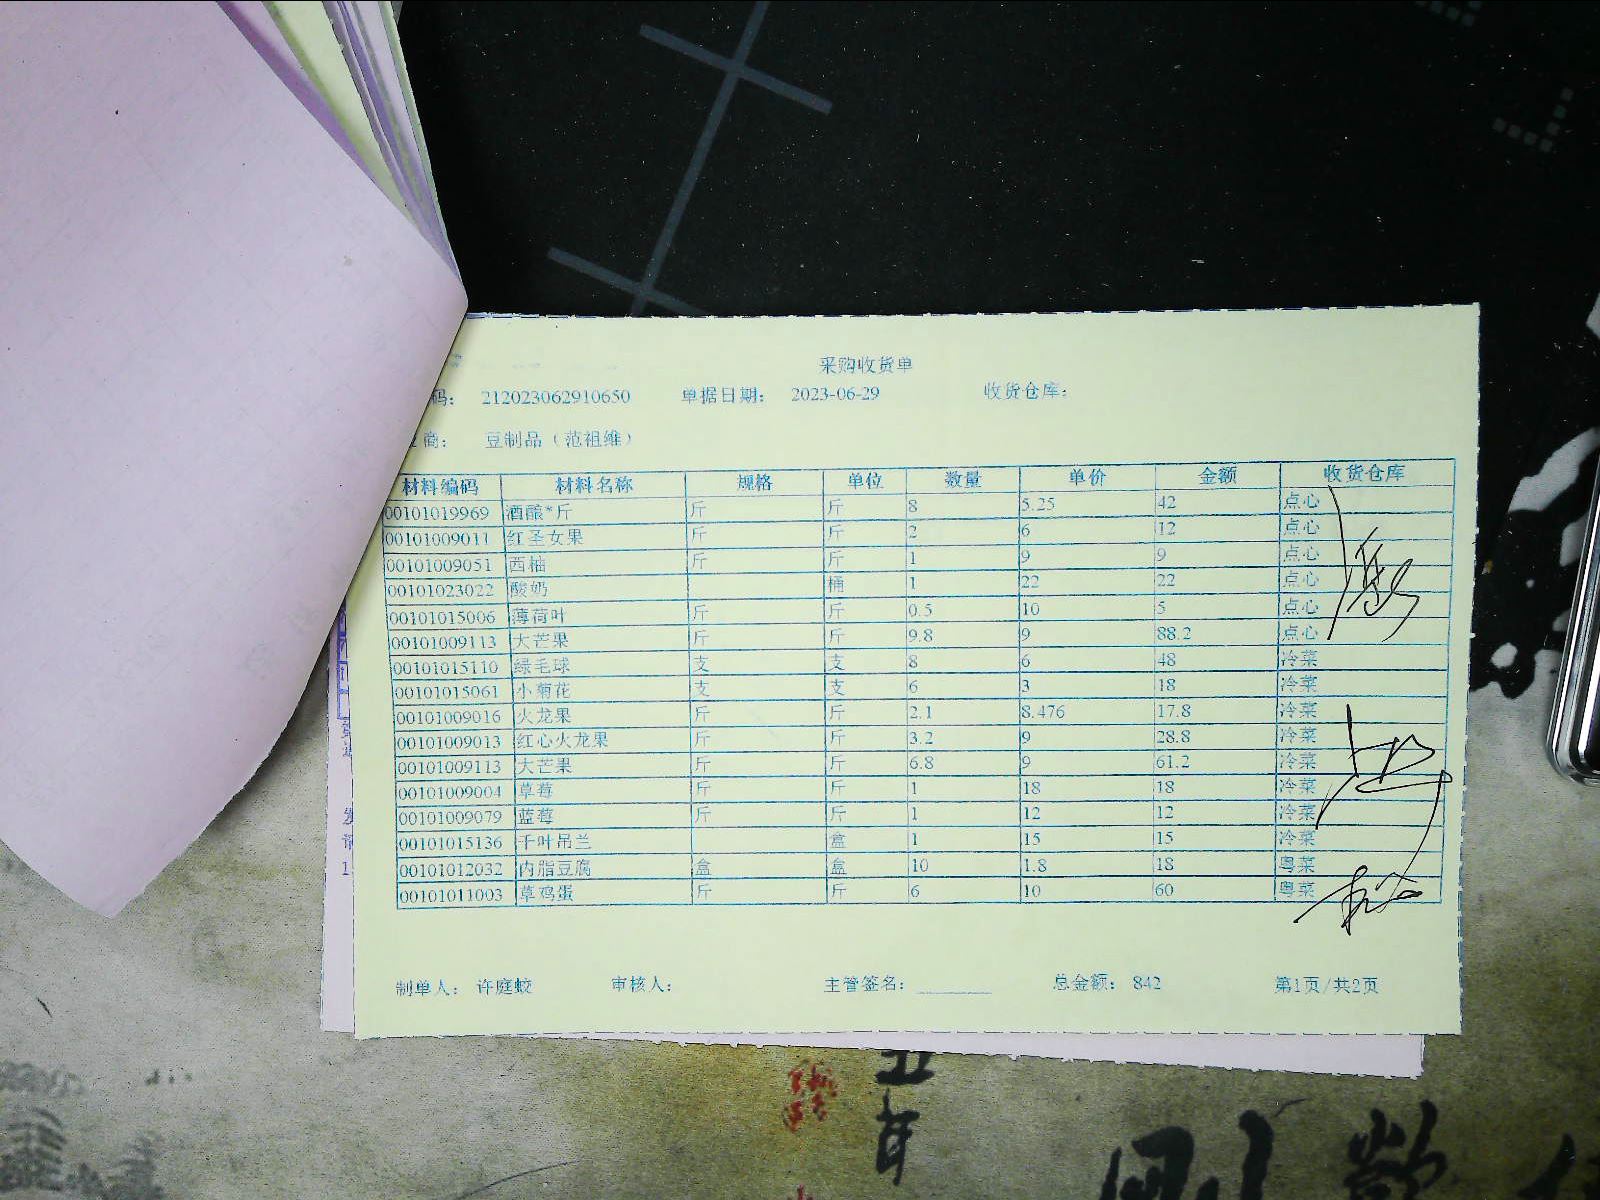 采购收货单
码： 212023062910650 单据日期： 2023-06-29 收货仓库：
商： 豆制品（范祖维）
材料编码 材料名称 规格 单位 数量 单价 金额 收货仓库
00101019969 酒酿*斤 斤 斤 8 5.25 42 点心
00101009011 红圣女果 斤 斤 2 6 12 点心
00101009051 西柚 斤 斤 1 9 9 点心
00101023022 酸奶 桶 1 22 22 点心
00101015006 薄荷叶 斤 斤 0.5 10 5 点心
00101009113 大芒果 斤 斤 9.8 9 88.2 点心
00101015110 绿毛球 支 支 8 6 48 冷菜
00101015061 小菊花 支 支 6 3 18 冷菜
00101009016 火龙果 斤 斤 2.1 8.476 17.8 冷菜
00101009013 红心火龙果 斤 斤 3.2 9 28.8 冷菜
00101009113 大芒果 斤 斤 6.8 9 61.2 冷菜
00101009004 草莓 斤 斤 1 18 18 冷菜
00101009079 蓝莓 斤 斤 1 12 12 冷菜
00101015136 千叶吊兰 盒 1 15 15 冷菜
00101012032 内脂豆腐 盒 盒 10 1.8 18 粤菜
00101011003 草鸡蛋 斤 斤 6 10 60 粤菜
制单人： 许庭蛟 审核人： 主管签名： 总金额： 842 第1页/共2页
五年